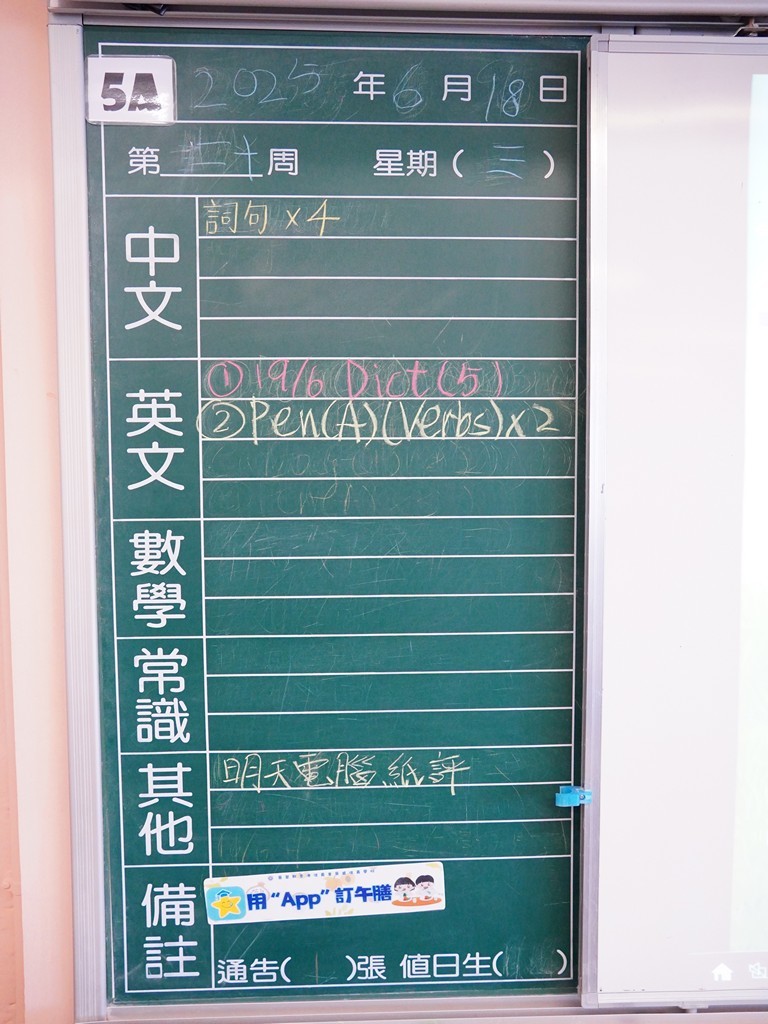 5A 2025年6月18日
第 二十 周 星期(三)
中文
詞句 x 4
英文
① 19/6 Dict(5)
② Pen(A)(Verbs)x2
數學
常識
其他
明天電腦紙評
備註
用“App”訂午膳
通告( )張 值日生( )